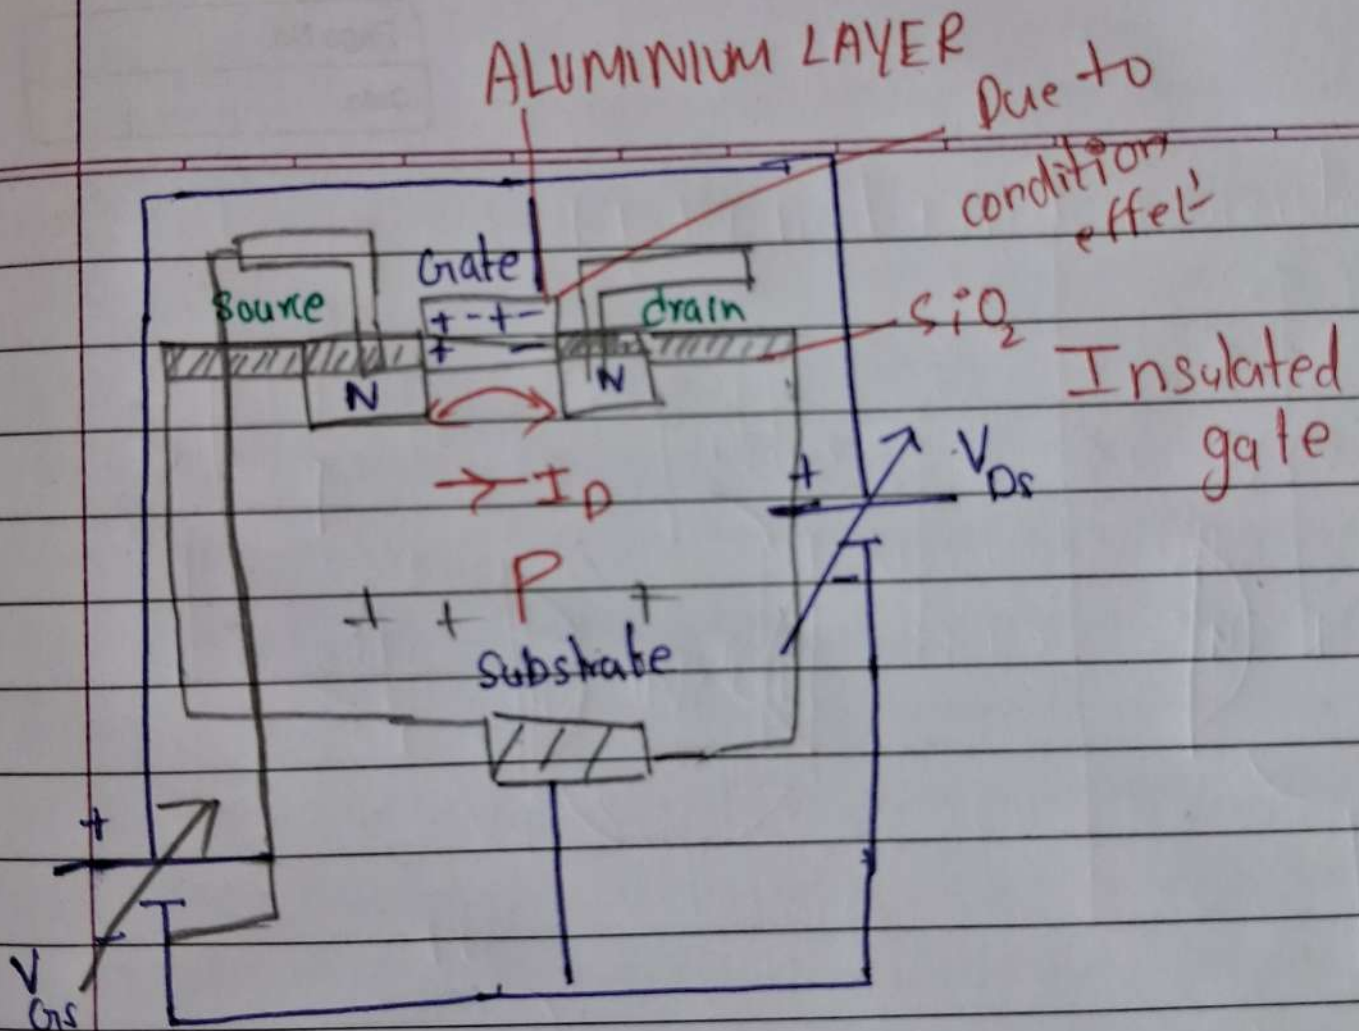 ALUMINIUM LAYER
Due to
condition
effelt
Gate
Source
+ - + -
drain
+ -
SiO2
N
N
Insulated
gate
→ ID
+
VDs
-
P
+ + +
Substrate
+
-
VGs